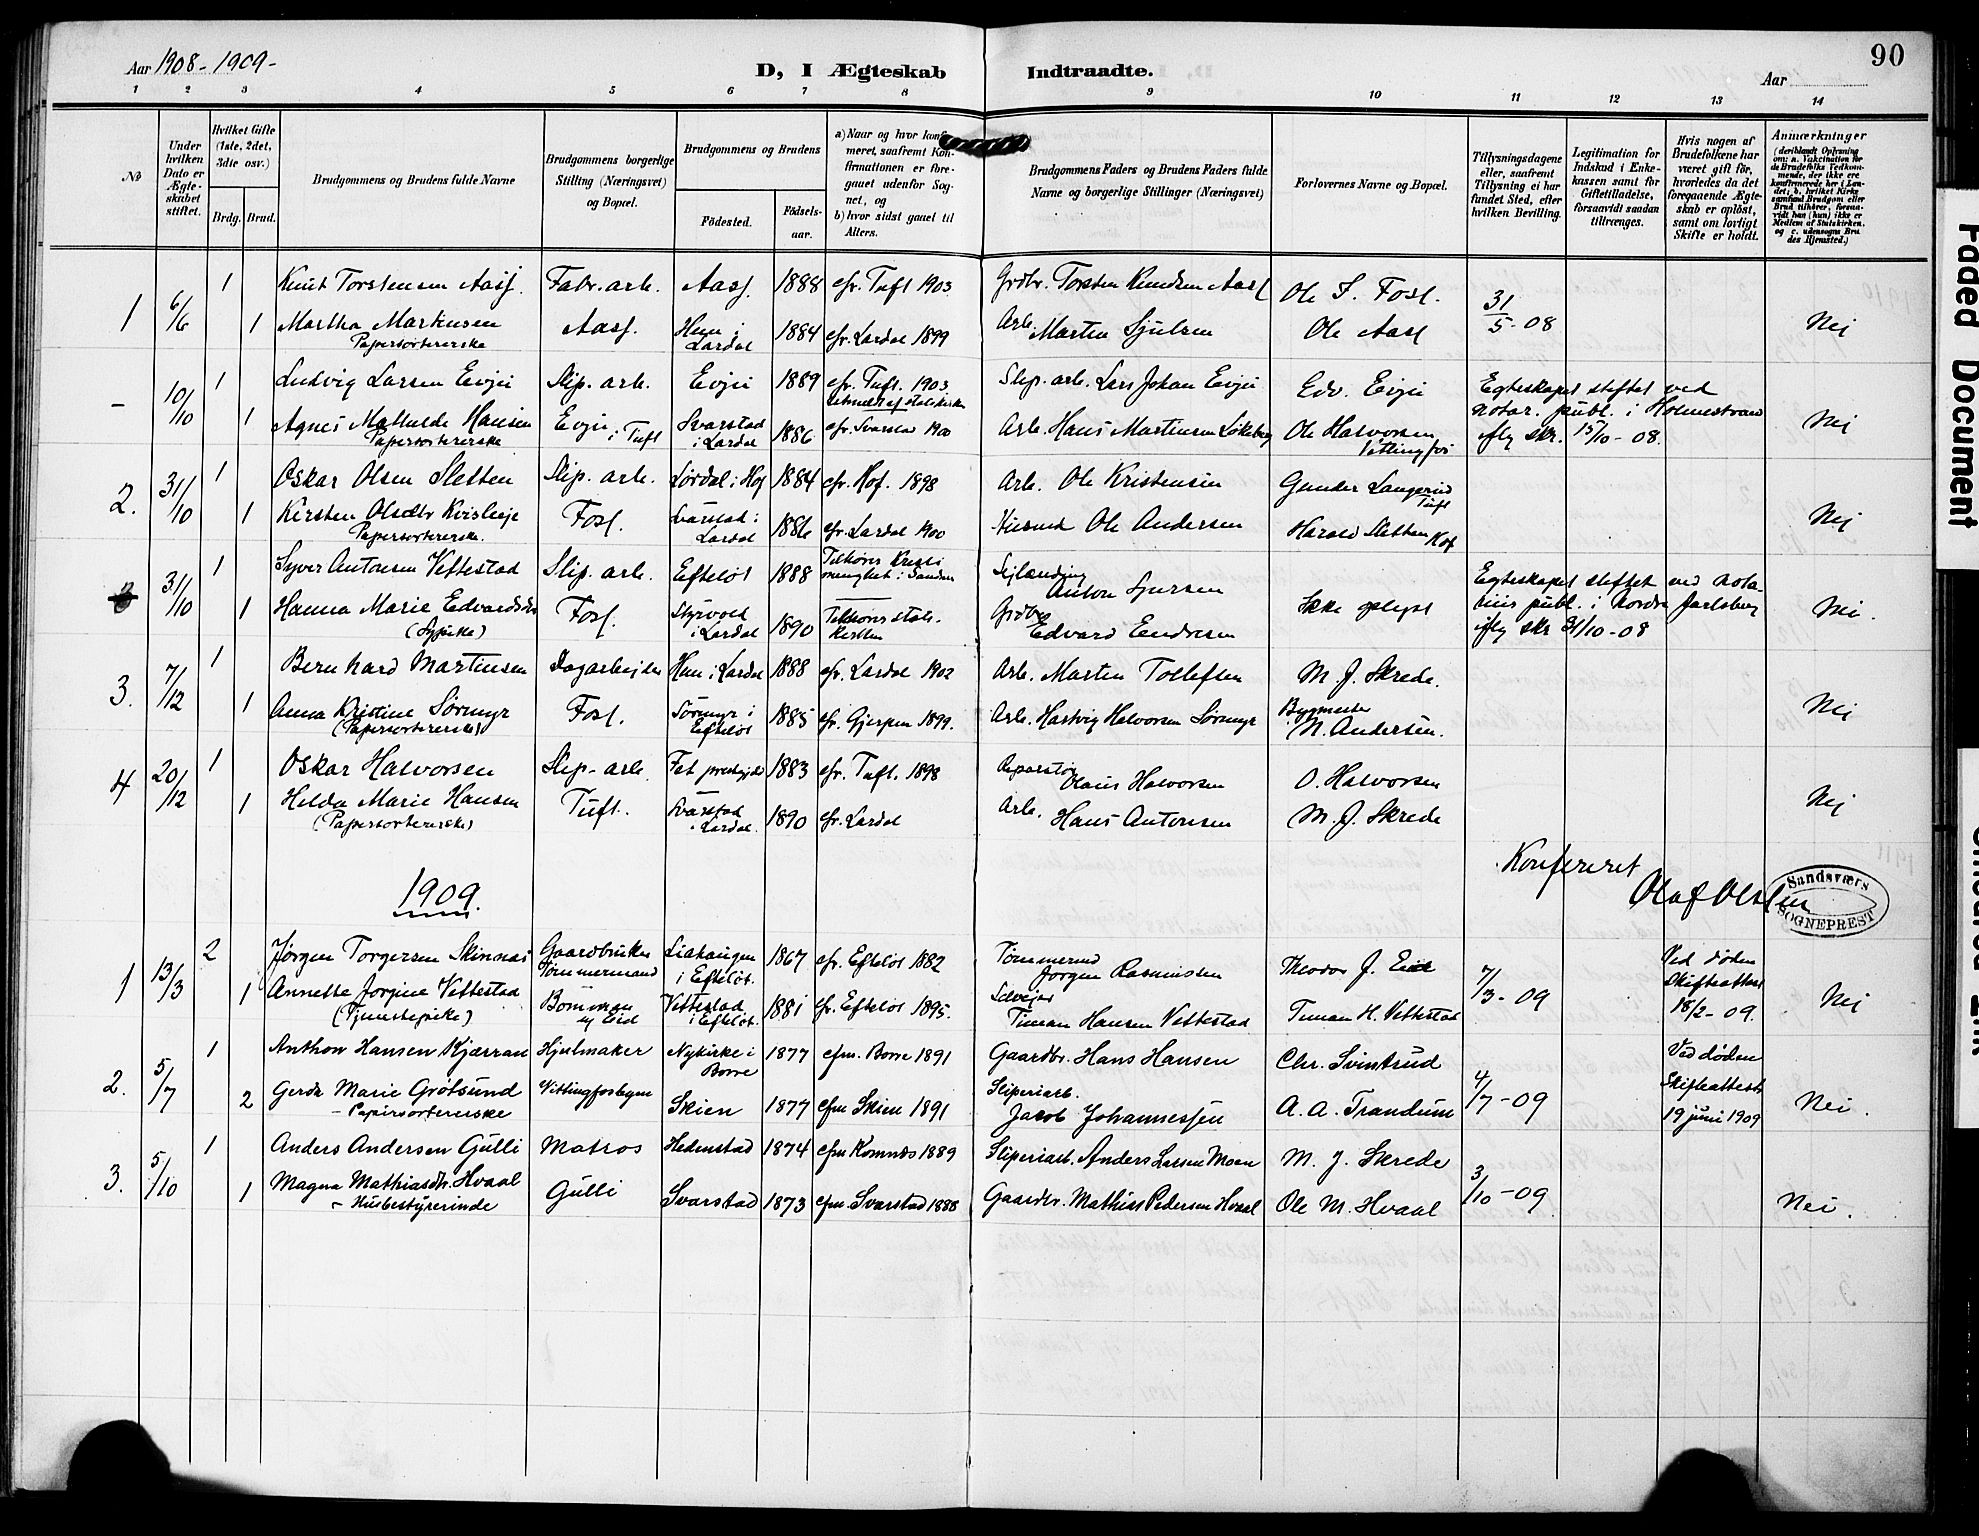 Aar 1908-1909-
D, I Ægteskab Indtraadte.
90
Aar
1 2 3 4 5 6 7 8 9 10 11 12 13 14
№
Under hvilken Dato er Ægteskabet stiftet.
Hvilket Gifte (1ste, 2det, 3die osv.)
Brdg. Brud.
Brudgommens og Brudens fulde Navne
Brudgommens borgerlige Stilling (Næringsvei) og Bopæl.
Brudgommens og Brudens
Fødested.
Fødselsaar.
a) Naar og hvor konfirmeret, saafremt Konfirmationen er foregaaet udenfor Sognet, og
b) hvor sidst gaaet til Alters.
Brudgommens Faders og Brudens Faders fulde Navne og borgerlige Stillinger (Næringsvei)
Forlovernes Navne og Bopæl.
Tillysningsdagene eller, saafremt Tillysning ei har fundet Sted, efter hvilken Bevilling.
Legitimation for Indskud i Enkekassen samt for Giftetilladelse, forsaavidt saadan tiltrænges.
Hvis nogen af Brudefolkene har været gift før, hvorledes da det foregaaende Ægteskab er opløst, samt om lovligt Skifte er holdt.
Anmærkninger
1 6/6 1 Knut Torstensen Aasf. Fabr. arb. Aasf. 1888 cfr. Tuft 1903 Grdbr. Torsten Knudsen Aasf Ole S. Fosf. 31/5-08
1 Martha Martinsen Aasf. Hem i Lardal 1884 cfr. Lardal 1899 Arb. Martin Sjulsen Ole Aasf Nej
Papersortererske
- 10/10 1 Ludvig Larsen Evju Slip. arb. Evju 1889 cfr. Tuft. 1903 Slip. arb. Lars Johan Evju Edv. Evju Egteskapet stiftet ved
1 Agnes Mathilde Hansen Evju i Tuft Svarstad i Lardal 1886 cfr. Svarstad 1900 Arb. Hans Martinsen Løkeberg Ole Halvorsen Vittingfos notar. publ. i Holmestrand
Papersortererske ifly skr. 15/10-08. Nej
2. 31/10 1 Oskar Olsen Sletten Slip. arb. Lørdal i Hof 1884 cfr. Hof. 1898 Arb. Ole Kristensen Gunder Langerud Tuft
1 Kirsten Olsdtr Kvisleje Fosf. Svarstad i Lardal 1886 cfr. Lardal 1900 Husmd Ole Andersen Harald Sletten Hof Nej
Papersortererske.
31/10 1 Syver Antonsen Vettestad Slip. arb. Efteløt 1888 Tilhører Kristi menighet i Sanden Anton Syversen Egteskapet stiftet ved nota-
1 Hanna Marie Edvardsdtr Fosf. Styrvold i Lardal 1890 Tilhører statskirken Grdbr Edvard Endresen Ikke oplyst rius publ. i Nordre Jarlsberg
(Sypike) ifly skr 31/10-08 Nei.
3. 7/12 1 Bernhard Martinsen Dagarbejder Hem i Lardal 1888 cfr. Lardal 1902 Arb. Martin Tollefsen M. J. Skrede.
1 Anna Kristine Sørmyr Fosf. Sørmyr i Efteløt 1885 cfr. Gjerpen 1899. Arb. Hartvig Halvorsen Sørmyr Bygmester N. Andersen. Nej
(Papersortererske)
4 20/12 1 Oskar Halvorsen Slip-arb. Fet prestegjeld 1883 cfr. Tuft. 1898 Reparatør Olaus Halvorsen O. Halvorsen
1 Helda Marie Hansen Tuft. Svarstad i Lardal. 1890 cfr. Lardal Arb. Hans Antonsen M. J. Skrede Nej
(Papersortererske)
Konfereret
Olaf Olsen
Sandsværs SOGNEPREST
1909.
1 13/3 2 Jørgen Torgersen Skinnes Gaardbruker Tømmermand Liahaugen i Efteløt. 1867 cfr. Efteløt 1882 Tømmermd Jørgen Rasmussen Theodor J. Eide 7/3-09 Ved døden
1 Annette Jorgine Vettestad Bømmen og Eid Vettestad i Efteløt. 1881 cfr. Efteløt 1895. Selvejer Timan Hansen Vettestad Timan H. Vettestad Skifteattest 18/2-09. Nej
(Tjenestepike)
2. 5/7 1 Anthon Hansen Kjærran Hjulmaker Nykirke i Borre 1877 cfm. Borre 1891 Gaardbr. Hans Hansen Chr. Svintrud 4/7-09 Ved døden
2 Gerda Marie Grøtsund Vittingfosbyen Skien 1877 cfm Skien 1891 Sliperiarb. Jacob Johannessen A. A. Trandum Skifteattest 19 juni 1909 Nei.
- Papirsortererske
3. 5/10 1 Anders Andersen Gulli Matros Hedenstad 1874 cfm Komnes 1889 Sliperiarb. Anders Larsen Moen M. J. Skrede 3/10-09
1 Magna Mathiasdtr. Hvaal Gulli Svarstad 1873 cfm. Svarstad 1888 Gaardbr. Mathias Pedersen Hvaal Ole M. Hvaal Nei.
- Husbestyrerinde
Faded Document